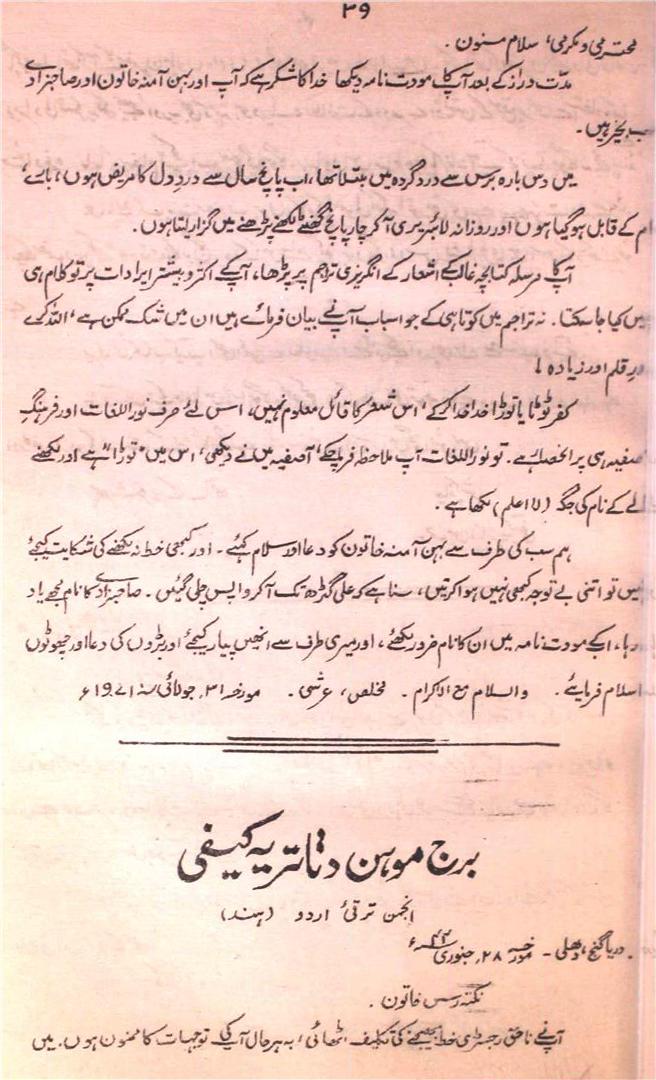 ۳۹
محترمی و مکرمی، سلام مسنون۔
مدّت دراز کے بعد آپ کا مودت نامہ دیکھا خدا کا شکر ہے کہ آپ اور بہن آمنہ خاتون اور صاحبزادی
سب بخیر ہیں۔
میں دس بارہ برس سے درد گردہ میں مبتلا تھا، اب پانچ سال سے دردِ دل کا مریض ہوں، بارے،
کام کے قابل ہو گیا ہوں اور روزانہ لائبریری آ کر چار پانچ گھنٹے لکھنے پڑھنے میں گزار لیتا ہوں۔
آپ کا مرسلہ کتابچہ غالب کے اشعار کے انگریزی تراجم پر پڑھا، آپ کے اکثر و بیشتر ایرادات پر تو کلام ہی
نہیں کیا جا سکتا۔ نہ تراجم میں کوتاہی کے جو اسباب آپ نے بیان فرمائے ہیں ان میں شک ممکن ہے، اللہ کرے
زورِ قلم اور زیادہ!
کفر ٹوٹا یا توڑا خدا خدا کر کے، اس شعر کا قائل معلوم نہیں، اس لئے صرف نور اللغات اور فرہنگِ
آصفیہ ہی پر انحصار ہے۔ تو نور اللغات آپ ملاحظہ فرما چکے، آصفیہ میں نے دیکھی، اس میں "توڑا" ہے اور لکھنے
والے کے نام کی جگہ (لا اعلم) لکھا ہے۔
ہم سب کی طرف سے بہن آمنہ خاتون کو دعا اور سلام کہئے۔ اور کبھی خط نہ لکھنے کی شکایت کیجئے
بہنیں تو اتنی بے توجہ کبھی نہیں ہوا کرتیں، سنا ہے کہ علی گڑھ تک آ کر واپس چلی گئیں۔ صاحبزادی کا نام مجھے یاد
رہا، اب کے مودت نامہ میں ان کا نام ضرور لکھئے، اور میری طرف سے انھیں پیار کیجئے اور بڑوں کی دعا اور چھوٹوں
کا سلام فرمائیے۔ والسلام مع الاکرام۔ مخلص، عرشی۔ مورخہ ۳۱؍ جولائی سنہ ۱۹۷۱ء
برج موہن دتاتریہ کیفی
انجمن ترقیٔ اردو (ہند)
دریا گنج، دھلی۔ مورخہ ۲۸؍ جنوری ۴۳ء
نکتہ رس خاتون۔
آپ نے ناحق رجسٹری خط بھیجنے کی تکلیف اٹھائی، بہرحال آپ کی توجہات کا ممنون ہوں۔ میں